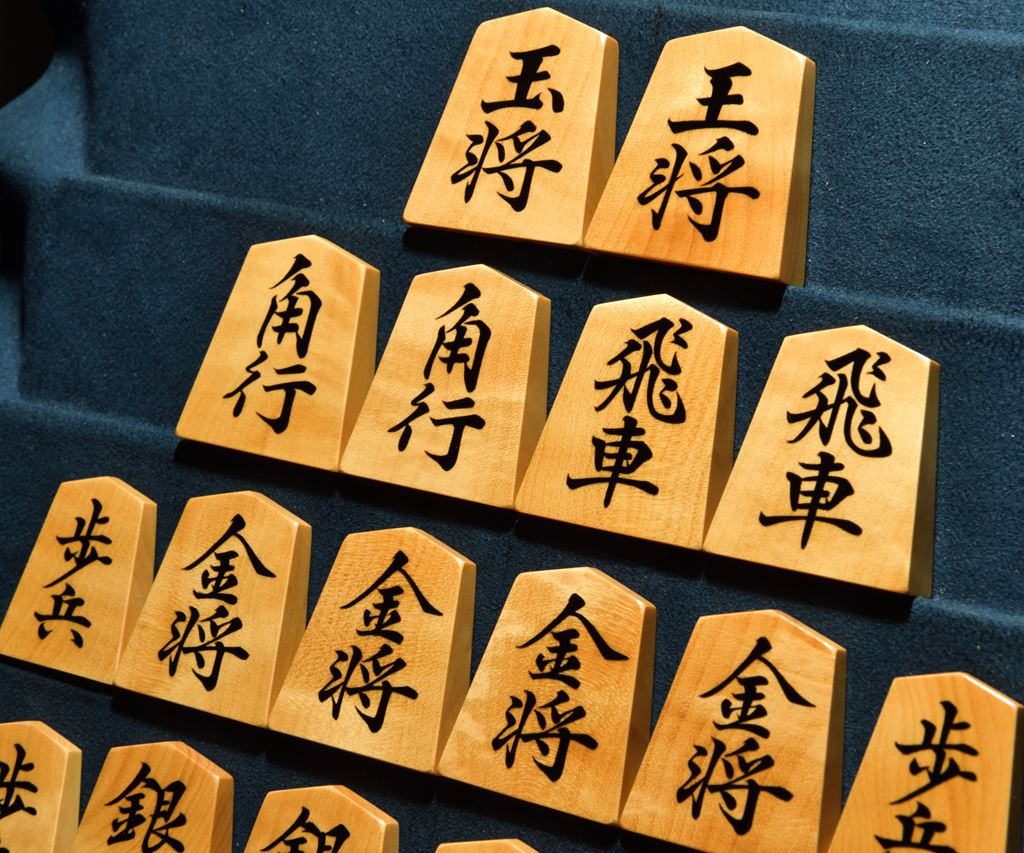 玉将 王将
角行 角行 飛車 飛車
歩兵 金将 金将 金将 金将 歩兵
歩 銀 銀